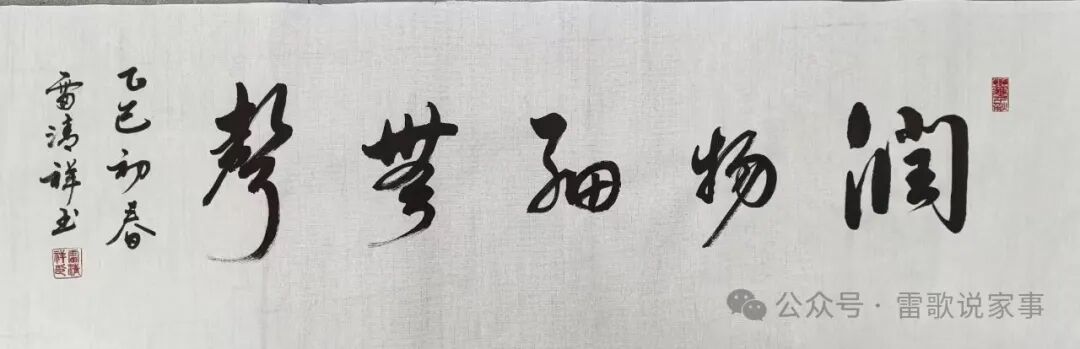 潤物細無聲
乙巳初春
雷清祥玉
公众号·雷歌说家事